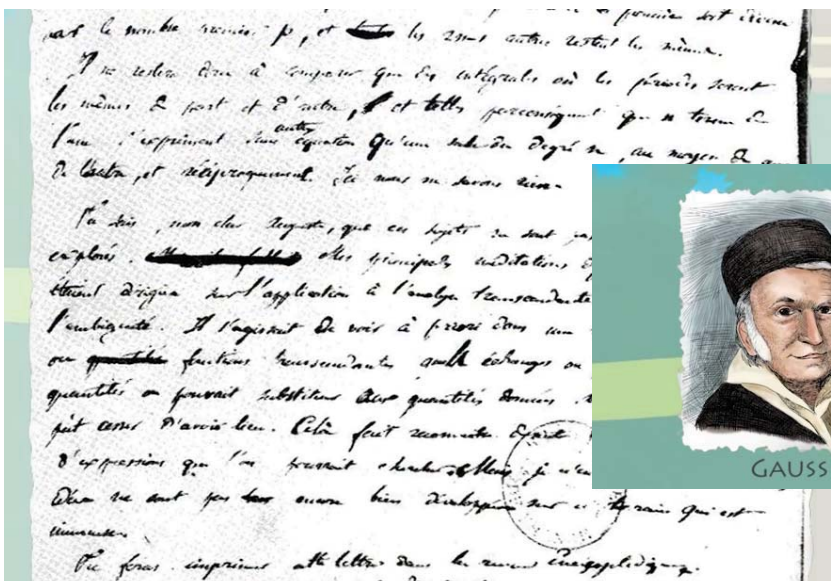 par le nombre premier p, et les autres restent les mêmes.
Il ne restera donc à comparer que des intégrales où les périodes seront
les mêmes de part et d'autre, et telles parconséquent que n termes de
l'une s'expriment sans autre équation qu'une seule du degré n, au moyen de
de l'autre, et réciproquement. Ici nous ne savons rien.
Tu sais, mon cher Auguste, que ces sujets ne sont pas
explorés. Mes principales méditations
étaient dirigées sur l'application à l'analyse transcendante
l'ambiguité. Il s'agissait de voir à priori dans une
ou fonctions transcendantes quels échanges on
quantités on pouvait substituer aux quantités données,
pût cesser d'avoir lieu. Cela fait reconnaitre
d'expressions que l'on pourrait chercher. Mais je n'ai
idées ne sont pas encore bien développées sur ce terrain qui est
immense.
Tu feras imprimer cette lettre dans la revue Encyclopédique.
GAUSS